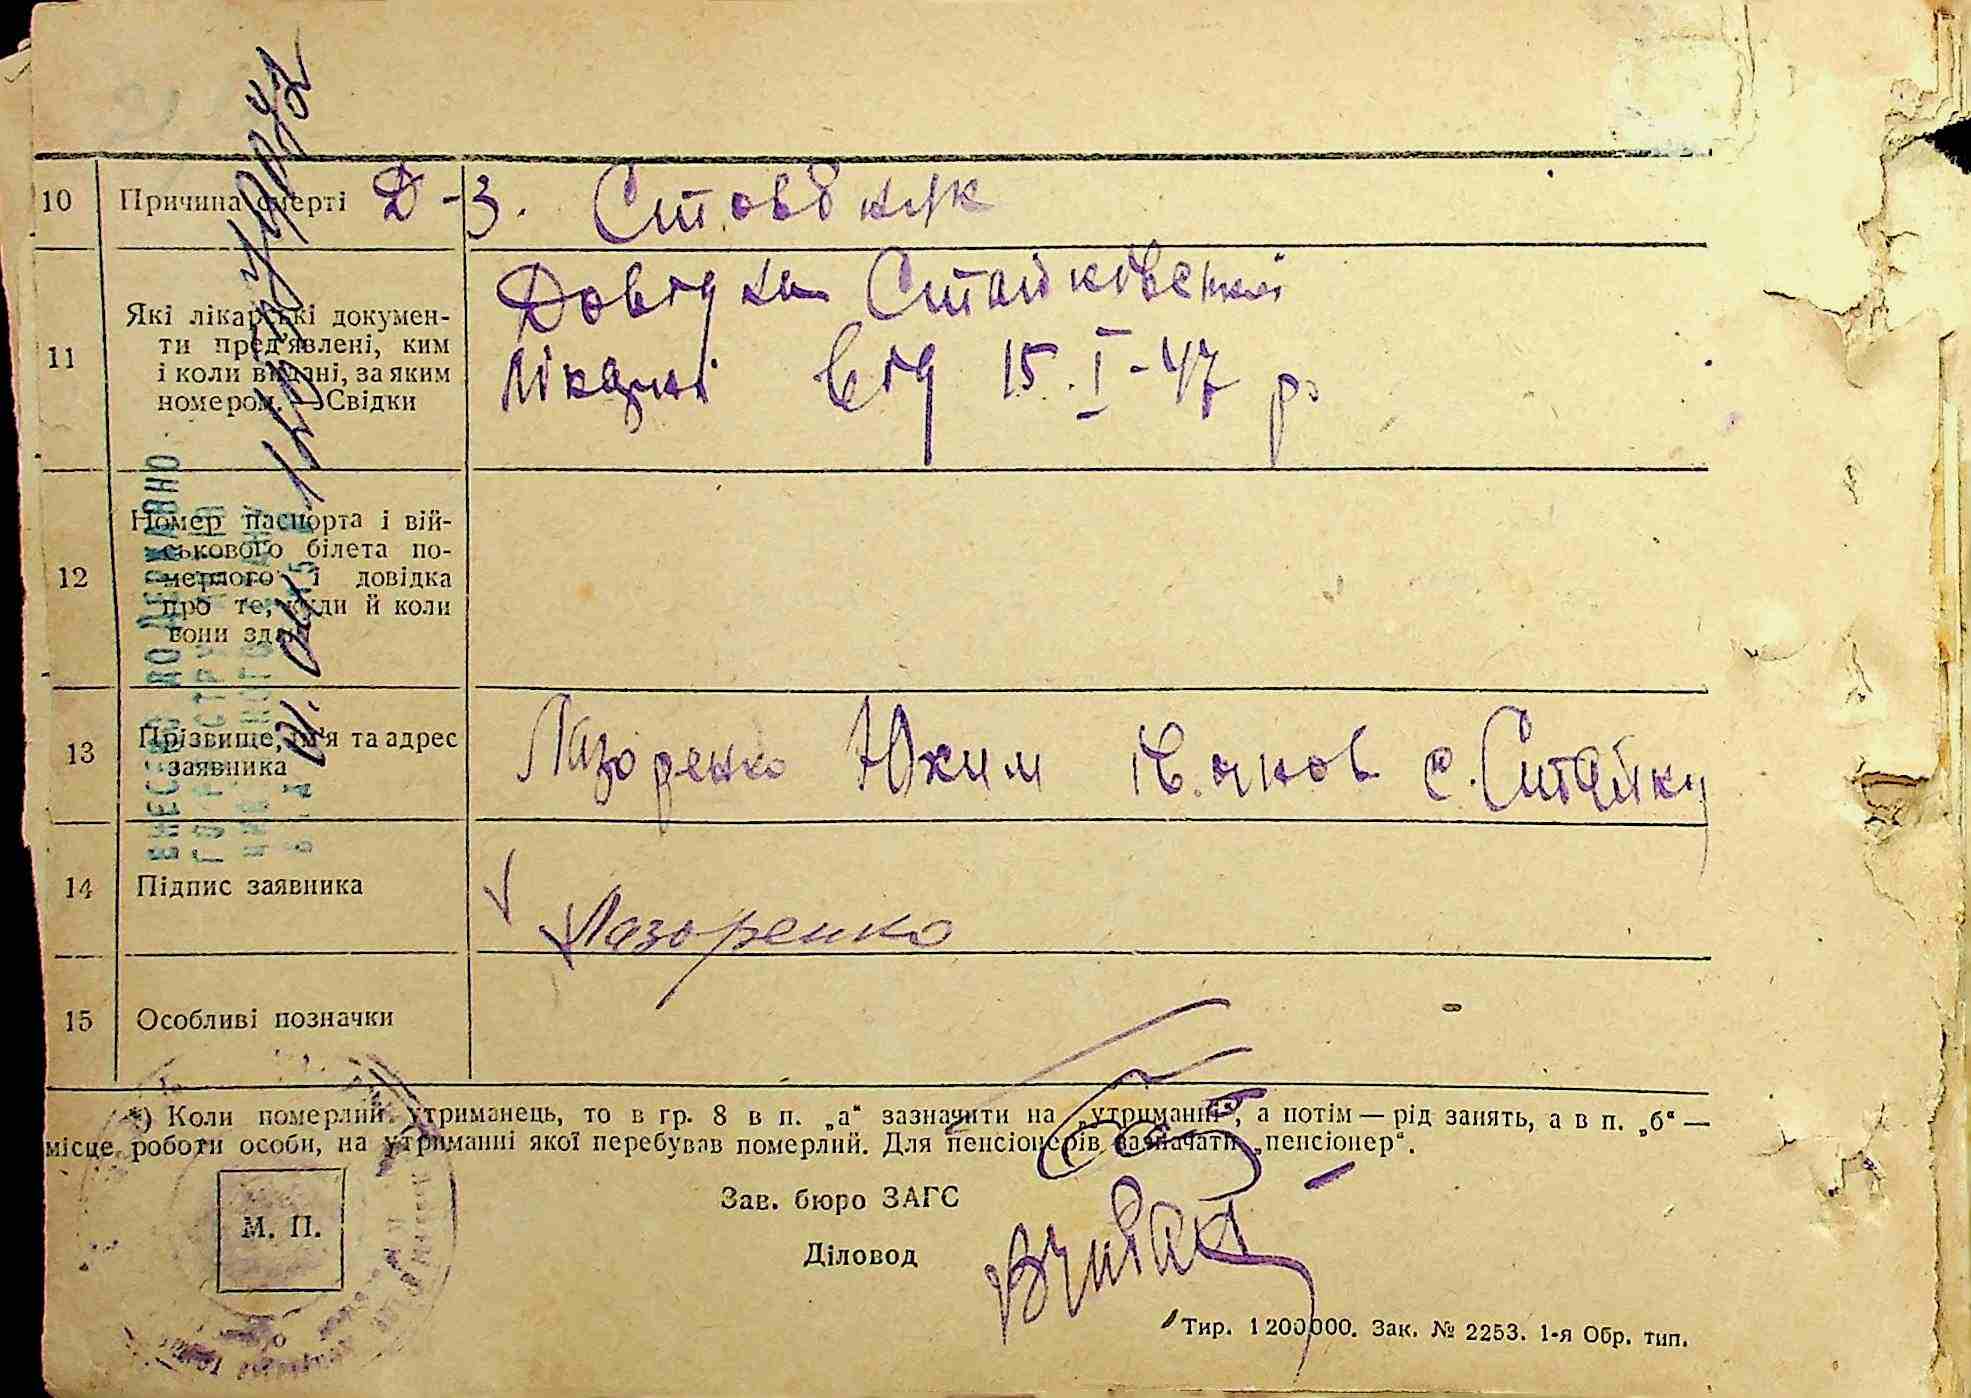 10 Причина смерті Д-З. Стовбняк
11 Які лікарські докумен-
ти пред'явлені, ким
і коли видані, за яким
номером. Свідки
Довідка Стайківської
лікарні від 15.I-47 р.
12 Номер паспорта і вій-
ськового білета по-
мерлого і довідка
про те, куди й коли
вони здані
13 Прізвище, ім'я та адрес
заявника
Лазоренко Юхим с. Стайки
14 Підпис заявника
Лазоренко
15 Особливі позначки
*) Коли померлий утриманець, то в гр. 8 в п. „а“ зазначити на „утриманні“, а потім — рід занять, а в п. „б“ —
місце роботи особи, на утриманні якої перебував померлий. Для пенсіонерів зазначати „пенсіонер“.
М. П.
Зав. бюро ЗАГС
Діловод
Тир. 1200000. Зак. № 2253. 1-я Обр. тип.
ВНЕСЕНО ДО ДЕРЖАВНО